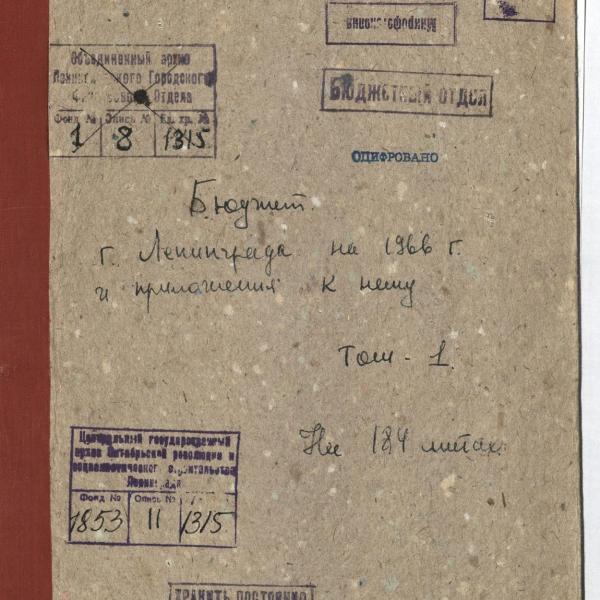 Микрофильмировано
Объединенный архив
Ленинградского Городского
Финансового Отдела
Фонд № Опись № Ед. хр. №
1 8 1315
БЮДЖЕТНЫЙ ОТДЕЛ
ОЦИФРОВАНО
Бюджет
г. Ленинграда на 1966 г.
и приложения к нему
Том - 1.
На 184 листах
Центральный государственный
архив Октябрьской революции и
социалистического строительства
Ленинграда
Фонд № Опись №
1853 11 1315
ХРАНИТЬ ПОСТОЯННО